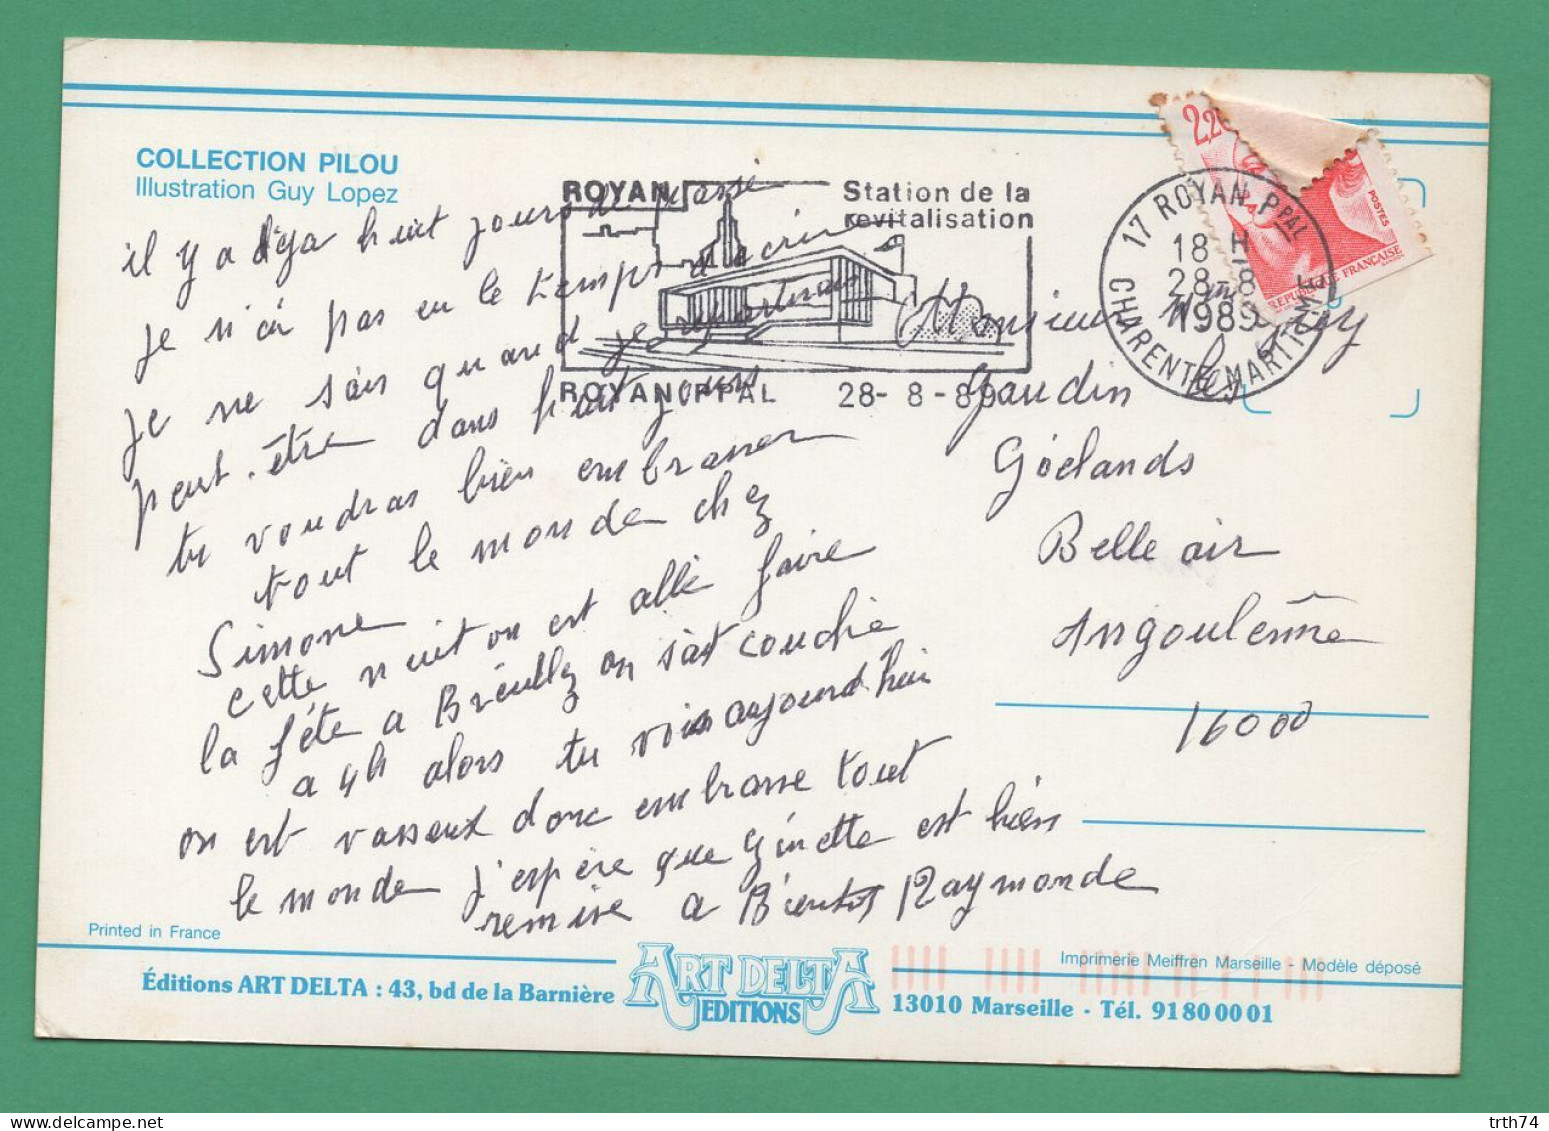 COLLECTION PILOU
Illustration Guy Lopez
ROYAN
Station de la
revitalisation
ROYAN PPAL 28-8-89
17 ROYAN PPAL
18 H
28-8
1989
CHARENTE MARITIME
2,20
POSTES
REPUBLIQUE FRANÇAISE
il y a déja huit jours de passé
je n'ai pas eu le temps d'écrire
je ne sais quand je repartirais
peut-être dans huit jours
tu voudras bien embrasser
tout le monde chez
Simone
cette nuit on est allé faire
la fête a Breuillez on s'est couché
a 4h alors tu vois aujourd'hui
on est vaseux donc embrasse tout
le monde j'espère que Ginette est bien
remise a Bientot Raymonde
Monsieur Mme Guy
Gaudin les
Goelands
Belle air
Angoulême
16000
Printed in France
Imprimerie Meiffren Marseille - Modèle déposé
Éditions ART DELTA : 43, bd de la Barnière
ART DELTA
EDITIONS
13010 Marseille - Tél. 91 80 00 01
trth74